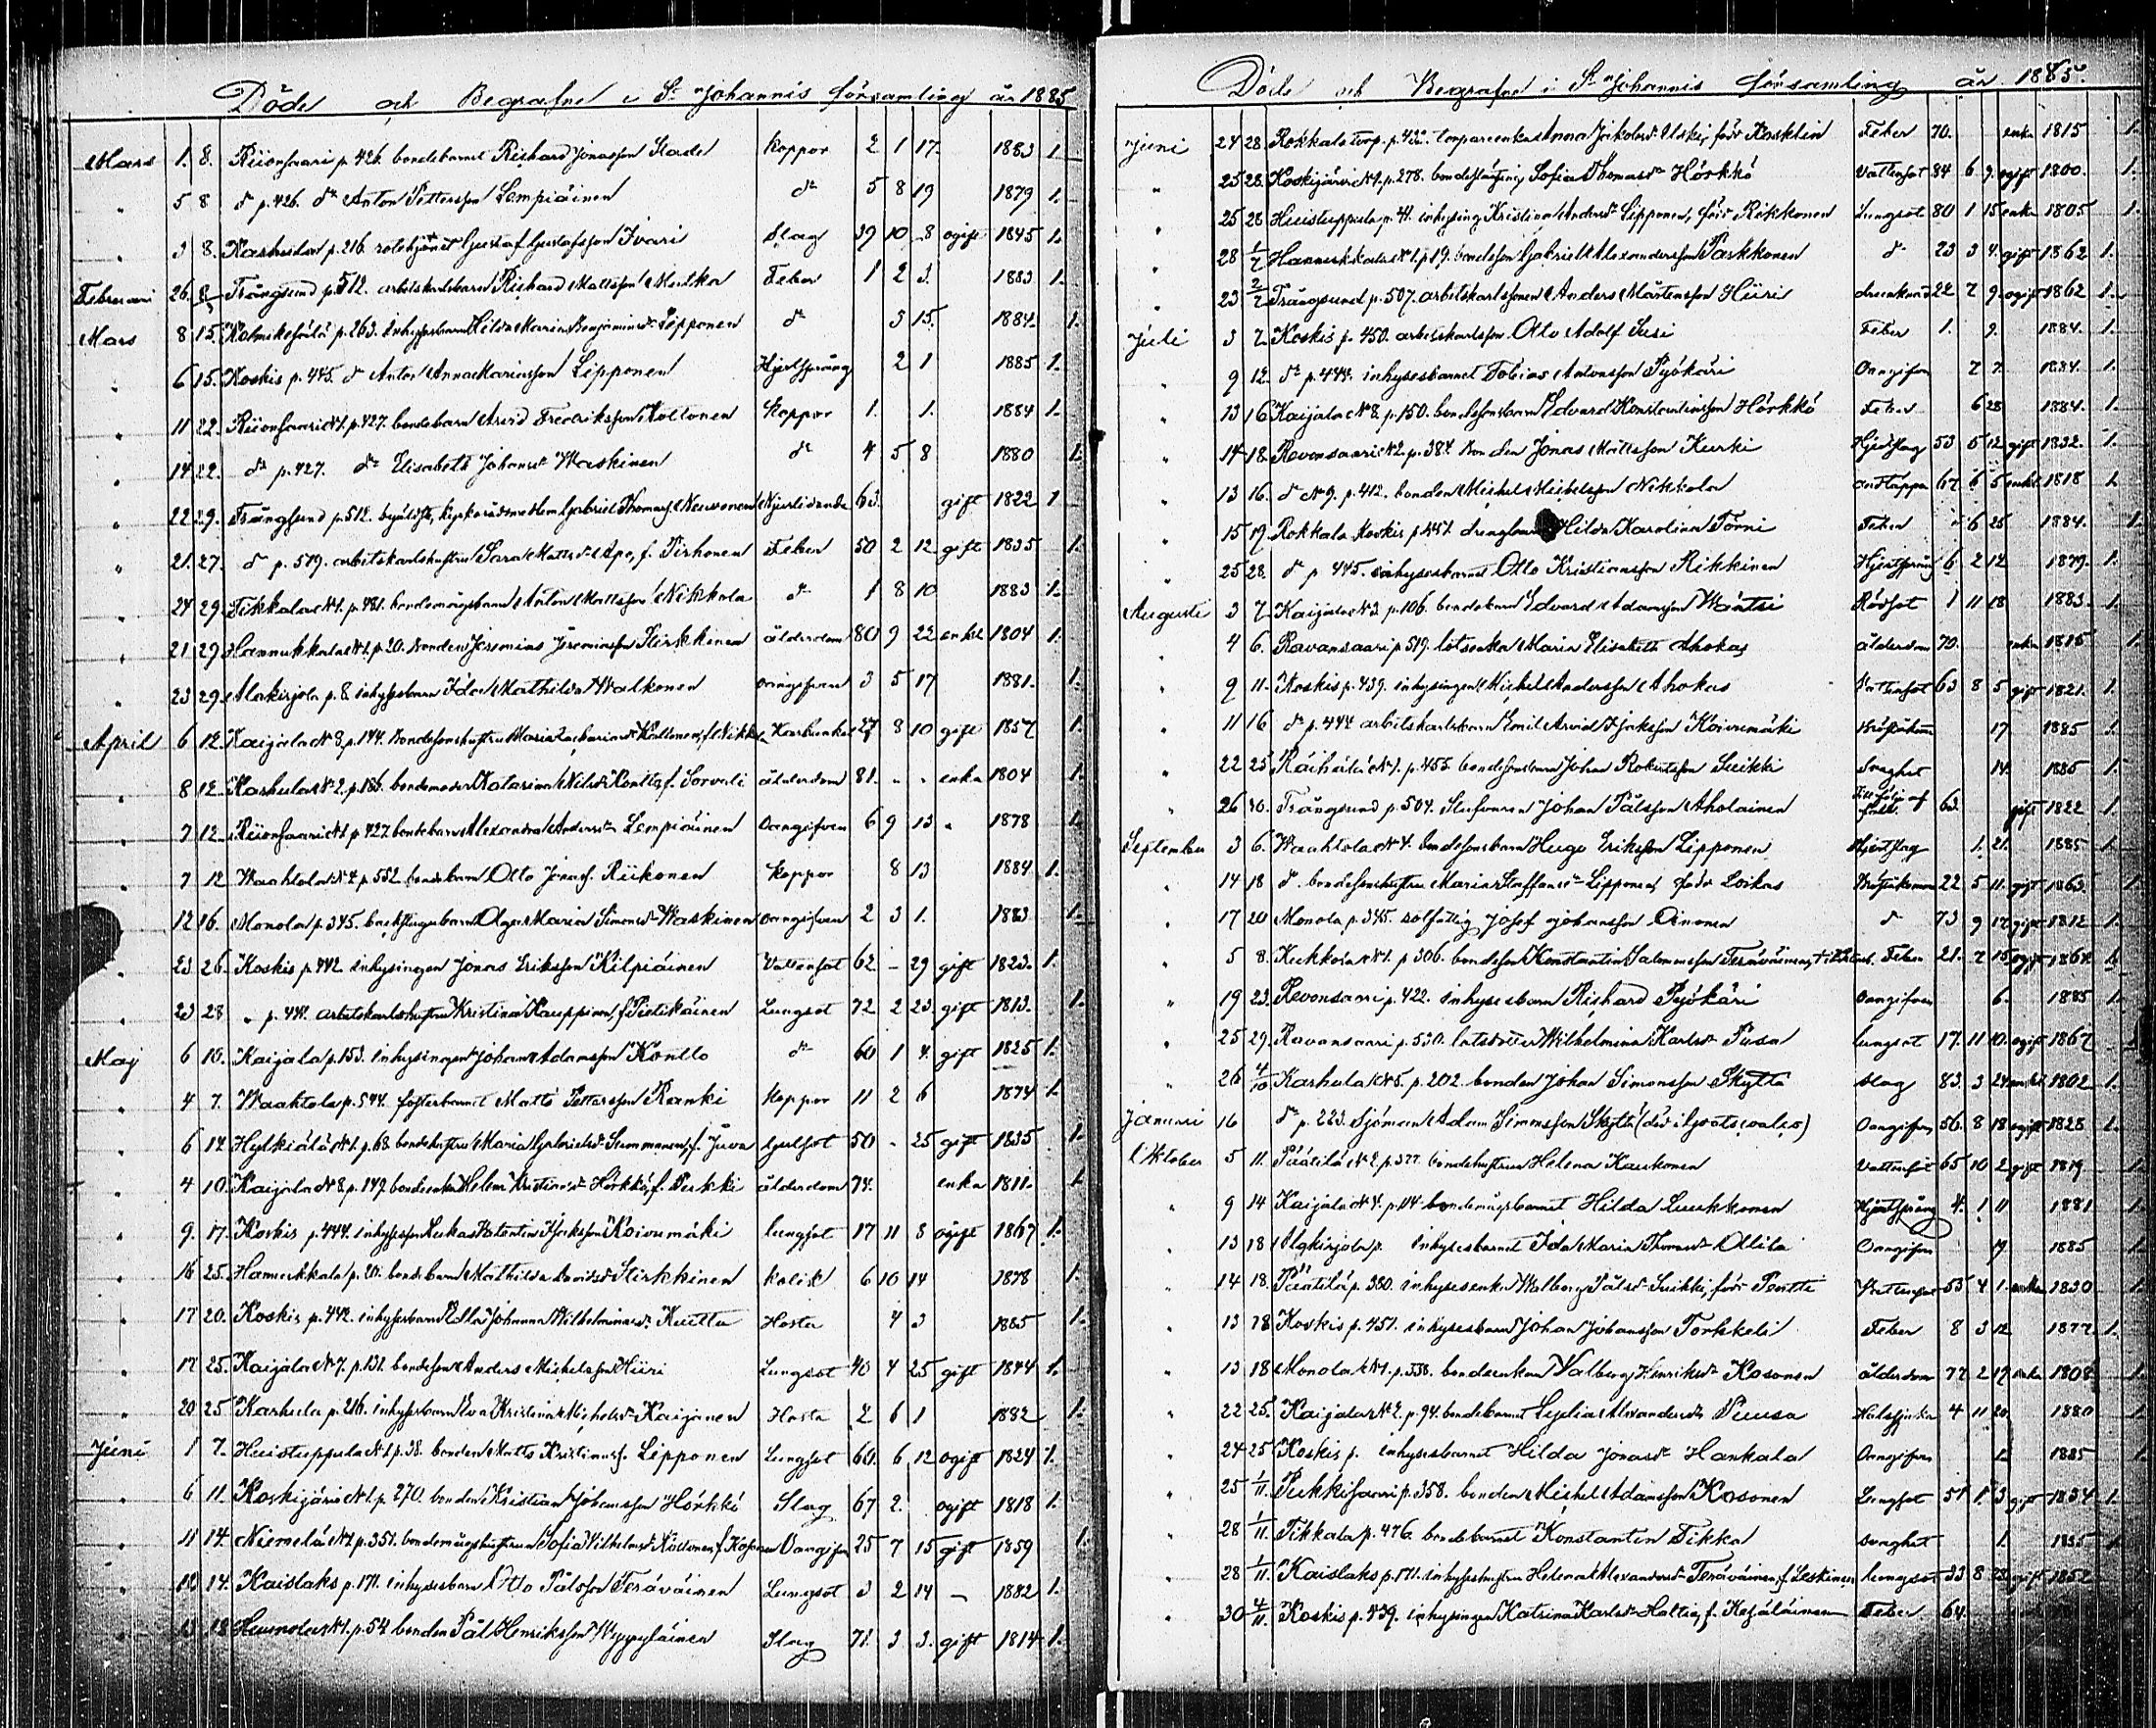 Döde och Begrafne i St Johannis församling år 1885
Mars 1. 8. Riionsaari p. 426. bondebarnet Richard Jonasson Stadel koppor 2 1 17. 1883 1.
" 5 8 do p. 426. do Anton Pettersson Lempiäinen do 5 8 19 1879 1.
" 3 8. Karhula p. 216. Gustaf Gustafsson Ivari Slag 39 10 8 ogift 1845 1.
Februari 26. 8/3 Trångsund p. 512. arbetskarlsbarn Richard Mattsson Feber 1 2 3. 1883 1.
Mars 8 15. Kolmikesälä p. 263. inhysesbarn Hilda Maria Benjaminsdr Lipponen do 3 15. 1884. 1.
" 6 15. Koskis p. 445. do Anton Annamariasson Lipponen Hjertsprång 2 1 1885 1.
" 11 22. Riionsaari N1. p. 427. bondebarn Arvid Fredriksson Koppor 1. 1. 1884 1.
" 14 22. do p. 427. do Elisabeth Johansdr Waskinen do 4 5 8 1880 1.
" 22 29. Trångsund p. 512. Gabriel Thomass. Neuvonen 63. gift 1822 1
" 21. 27. do p. 519. arbetskarlshustru Sara Mattsdr Apo, f. Pirhonen Feber 50 2 12 gift 1835 1.
" 24 29. Tikkala N1. p. 481. bondemågsbarn Anton Mattsson Nikkola do 1 8 10 1883 1.
" 21 29 Hannukkala N1. p. 20. bonden Jeremias Jeremiasson Stirkkinen ålderdom 80 9 22 enkl 1804 1.
" 23 29. Alakirjola p. 8 inhysesbarn Ida Mathilda Walkonen oangifven 3 5 17 1881. 1.
April 6 12. Kaijala N 8 p. 144. bondesonhustru Maria Zachariasdr Karbunkel 27 8 10 gift 1857 1.
" 8 12. Karhula N 2. p. 186. bondemoder Katarina Nilsdr Kontto, f. Sorvali ålderdom 81. - - enka 1804 1.
" 7 12. Riionsaari N1 p. 427. bondebarn Alexandra Andersdr Lempiäinen Oangifven 6 9 13 " 1878 1.
" 7 12 Waahtola N 4 p. 552 bondebarn Otto Jonass. Riikonen Koppor 8 13 1884 1.
" 12 16. Monola p. 345. Olga Maria Simonsdr Waskinen oangifven 2 3 1. 1883 1.
" 23 26. Koskis p. 442 inhysingen Jonas Eriksson Kilpiäinen Vattensot 62 - 29 gift 1823. 1.
" 23 28 " p. 444. arbetskarlshustru Kristina Kauppinen, f. Pietikäinen Lungsot 72 2 23 gift 1813. 1.
Maj 6 10. Kaijala p. 153. inhysingen Johan Adamsson Kontto do 60 1 4. gift 1825 1.
" 4 7. Waahtola p. 544. fosterbarnet Matts Pettersson Ranki Koppor 11 2 6 1874 1.
" 6 14 Hytkiälä N1. p. 68. bondehustru Maria Gabrielsdr Summanen, f. Juva Gulsot 50 - 25 gift 1835 1.
" 4 10. Kaijala N 8. p. 149. bondeenka Helena Kristiansdr Hörkkö, f. Purkki ålderdom 74. enka 1811. 1.
" 9. 17. Koskis p. 444. inhysesson Lukas Isaksson Koivumäki lungsot 17 11 8 ogift 1867 1.
" 16 25. Hannukkala p. 20. bondebarn Mathilda Davidsdr Stirkkinen kolik 6 10 14 1878 1.
" 17 20. Koskis p. 442. inhysesbarn Ella Johanna Wilhelminasdr Kuitta Hosta 4 3 1885 1.
" 17 25. Kaijala N 7. p. 132. bondeson Anders Michelsson Hiiri Lungsot 40 4 25 gift 1844 1.
" 20 25 Karhula p. 216. inhysesbarn Eva Kristina Michelsdr Kaijanen Hosta 2 6 1 1882 1.
Juni 1 7. Huistuppula N1. p. 38. bonden Matts Kristianss. Lipponen Lungsot 60. 6 12 ogift 1824 1.
" 6 11. Koskijärvi N1 p. 270. bonden Kristian Johansson Hörkkö Slag 67 2. ogift 1818 1.
" 11 14. Niemelä N1 p. 351. bondemågshustrun Sofia Wilhelmsdr Oangifven 25 7 15 gift 1859 1.
" 10 14. Kaislaks p. 171. inhysesbarn Otto Pålsson Teräväinen Lungsot 3 2 14 - 1882 1.
" 13 18 Huunola N1. p. 54 bonden Pål Henriksson Slag 71. 3 3. gift 1814 1.
Döde och Begrafne i St Johannis församling år 1885.
Juni 24 28. Rokkala torp. p. 432. torpareenkan Anna Jakobsdr född Kosklin Feber 70. enka 1815 1.
" 25 28. Koskijärvi N1. p. 278. Sofia Thomasdr Hörkkö Vattensot 84 6 9. ogift 1800. 1.
" 25 28 Huistuppula p. 41. inhysing Kristina Andersdr Lipponen, född Rikkonen Lungsot 80 1 15 enka 1805 1.
" 28 1/7 Hannukkala N1. p. 19. bondeson Gabriel Alexandersson Paskkonen do 23 3 4. gift 1862 1.
" 23 2/7 Trångsund p. 507. arbetskarlssonen Anders Mårtensson Hiiri drunknad 22 7 9. ogift 1862 1.
Juli 3 7. Koskis p. 450. arbetskarlsson Otto Adolf Susi Feber 1. 9. 1884. 1.
" 9 12. do p. 444. inhysesbarnet Tobias Antonsson Pyökäri Oangifven 7 7. 1884. 1.
" 13 16 Kaijala N 8. p. 150. bondesonsbarn Edvard Konstantinsson Hörkkö Feber 6 28 1884. 1.
" 14 18. Revonsaari N2 p. 384. bonden Jonas Mattsson Kurki Hjertslag 53 5 12 gift 1832. 1.
" 13 16. do N 9. p. 412. bonden Michel Michelsson Nikkola andtäppa 67 6 5 enkl 1818 1.
" 15 19. Rokkala Koskis p. 451. Hilda Karolina Torni Feber " 6 25 1884. 1.
" 25 28. do p. 445. inhysesbarnet Otto Kristiansson Rikkinen Hjertsprång 6 2 12 1879. 1.
Augusti 3 7. Kaijala N 3. p. 106. bondebarn Edvard Adamsson Wäntsi Rödsot 1 11 18 1883. 1.
" 4 6. Ravansaari p. 519. lotsenka Maria Elisabeth Ahokas ålderdom 70. enka 1815 1.
" 9 11. Koskis p. 439. inhysingen Michel Andersson Ahokas Vattensot 63 8 5 gift 1821. 1.
" 11 16 do p. 444 arbetskarlsbarn Emil Arvid Isaksson Koivumäki 17 1885 1.
" 22 25. Räihälä N1. p. 455. bondesonsbarn Johan Robertsson Suikki Svaghet 14. 1885 1.
" 26 30. Trångsund p. 504. Johan Pålsson Aholainen 63. gift 1822 1.
September 3 6. Waahtola N 4. bondesonsbarn Hugo Eriksson Lipponen Hjertslag 1. 21. 1885 1.
" 14 18 do bondesonhustru Maria Staffansdr Lipponen född Loikas 22 5 11. gift 1863. 1.
" 17 20 Monola p. 345. rotfattig Josef Johansson Oinonen do 73 9 17 gift 1812 1.
" 5 8. Kukkola N1. p. 306. bondeson Konstantin Salomonsson Teräväinen Feber 21. 7 15 ogift 1864 1.
" 19 23. Revonsaari p. 422. inhysesbarn Richard Pyökäri Oangifven 6. 1885 1.
" 25 29. Ravansaari p. 530. lotsdotter Wilhelmina Karlsdr Pusa lungsot 17. 11 10. ogift 1867 1.
" 26 4/10 Karhula N 5. p. 202. bonden Johan Simonsson Skyttä Slag 83. 3 24 enkl 1802 1.
Januari 16 do p. 223. Sjöman Adam Simonsson Skyttä Oangifven 56. 8 18 ogift 1828 1.
Oktober 5 11. Päätilä N 2. p. 377. bondehustrun Helena Kaukonen Vattensot 65 10 2 gift 1819
" 9 14 Kaijala N 4. p. 114. bondemågsbarnet Hilda Luukkonen Hjertsprång 4. 1 11 1881 1.
" 13 18 Alakirjola p. inhysesbarnet Ida Maria Thomasdr Ollila Oangifven 19. 1885 1.
" 14 18. Päätilä p. 380. inhysesenka Walborg Pålsdr Suikki, född Pentti Vattensot 55 4 1. enka 1830
" 13 18 Koskis p. 451. inhysesbarn Johan Johansson Torkkeli Feber 8 3 12 1877. 1.
" 13 18 Monola N1. p. 338. bondeenkan Valborg Henriksdr Kosonen ålderdom 77 2 19 enka 1808 1.
" 22 25. Kaijala N 2. p. 94. bondebarnet Lydia Alexandersdr Puusa 4 11 20 1880 1.
" 24 25 Koskis p. inhysesbarnet Hilda Jonasdr Hankala Oangifven 1885 1.
" 25 1/11. Pukkisaari p. 358. bonden Michel Adamsson Kosonen Lungsot 51 1 3 gift 1834 1.
" 28 1/11. Tikkala p. 476. bondebarnet Konstantin Tikka svaghet 1. 1885 1.
" 28 1/11. Kaislaks p. 171. inhyseshustru Helena Alexandersdr Teräväinen, f. Leskinen lungsot 33 8 gift 1852
" 30 4/11. Koskis p. 439. inhysingen Katrina Karlsdr f. Kesäläinen Feber 64.